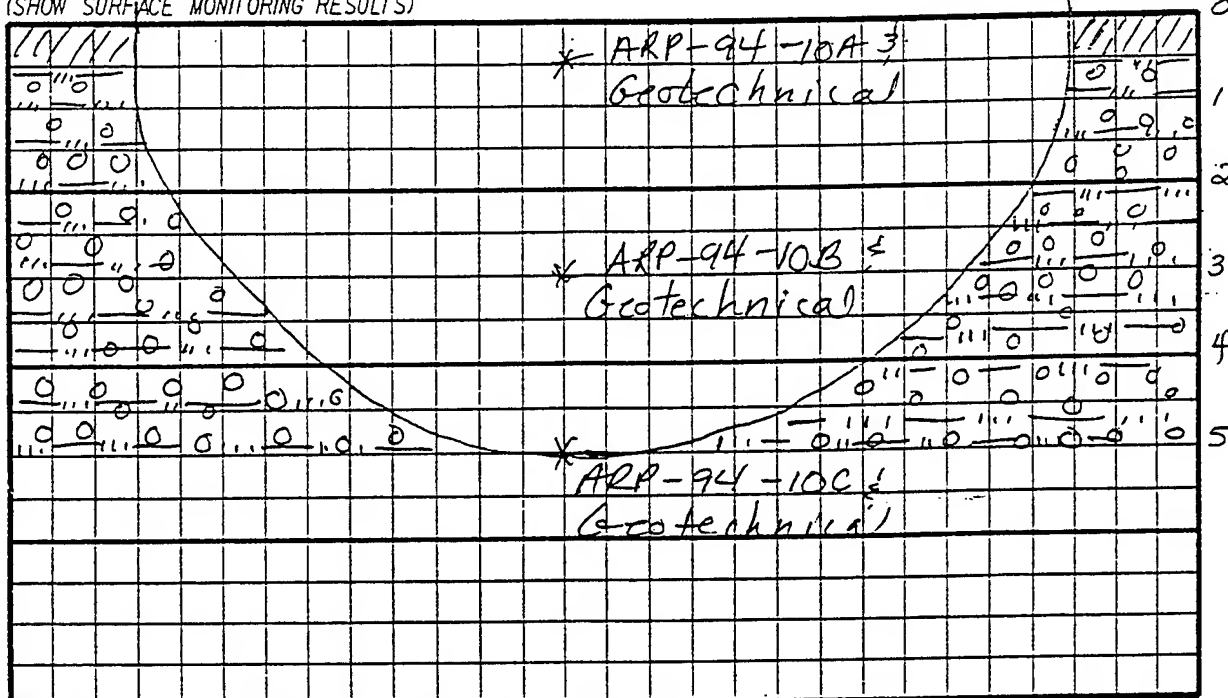 (SHOW SURFACE MONITORING RESULTS)
0
ARP-94-10A &
Geotechnical
1
2
ARP-94-10B &
Geotechnical
3
4
5
ARP-94-10C &
Geotechnical